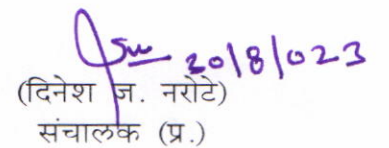 20/8/023
(दिनेश ज. नरोटे)
संचालक (प्र.)